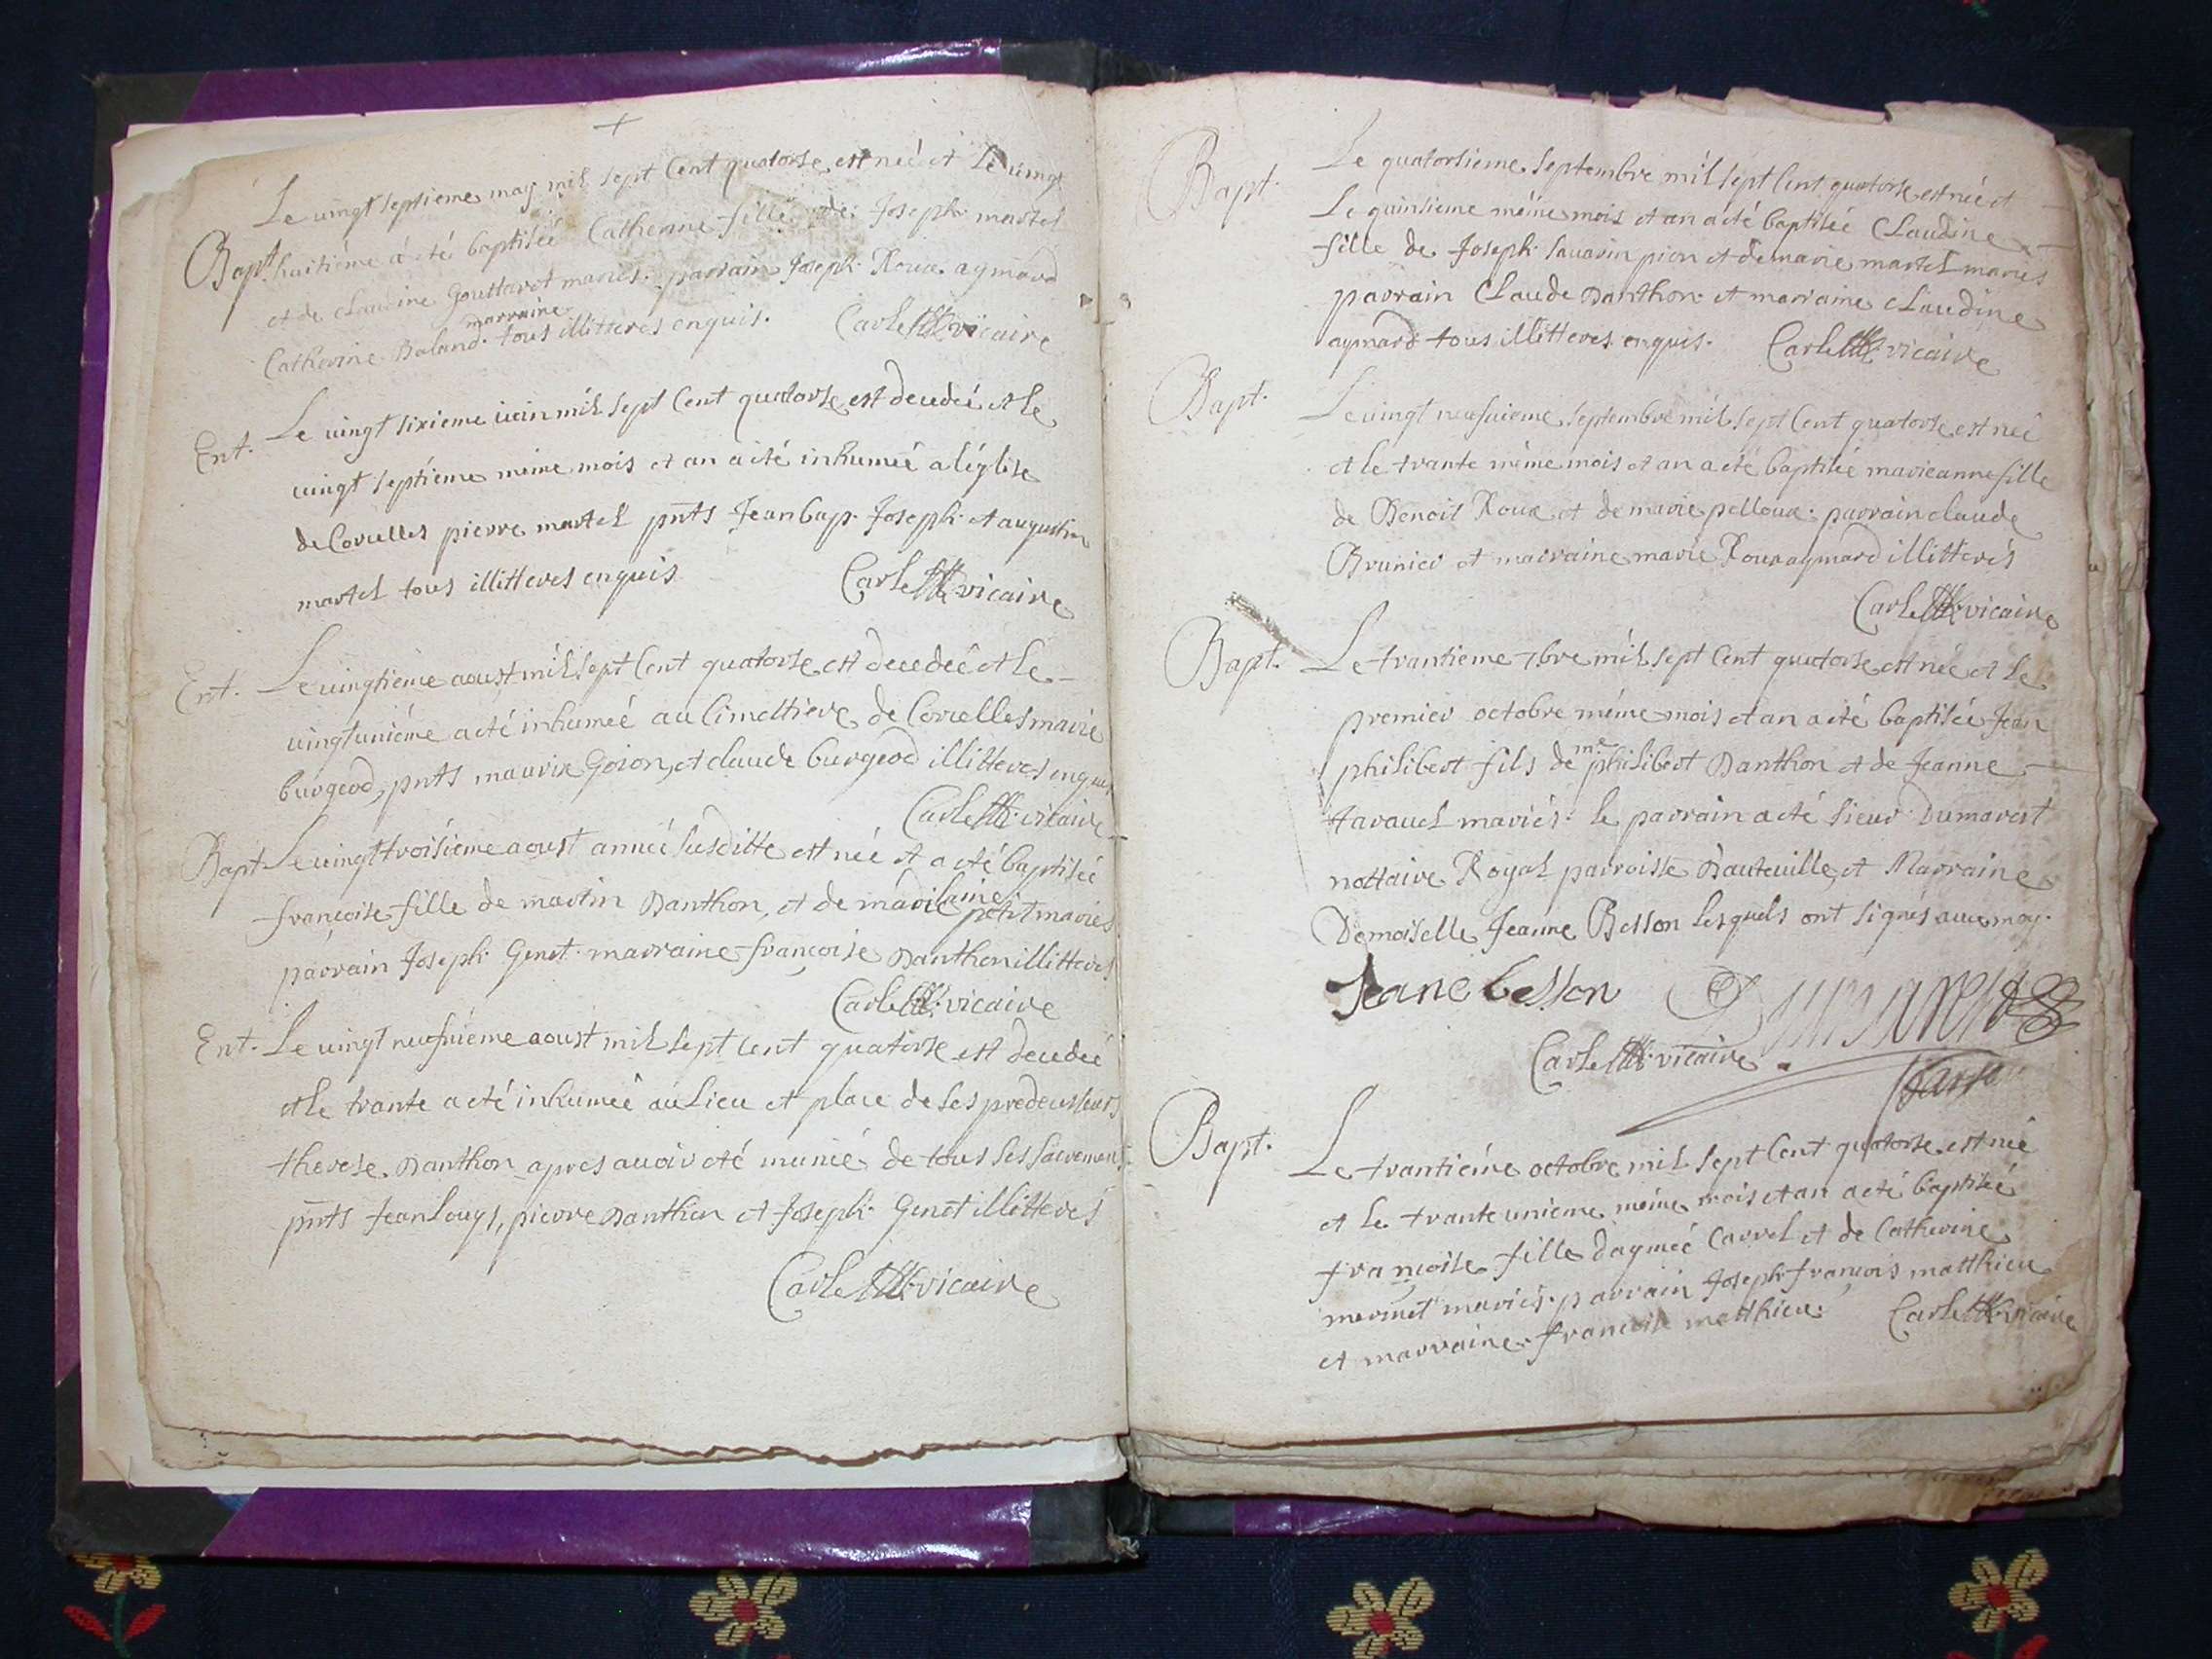 Le vingt septieme may mil sept Cent quatorse est neé et le vingt
Bapt. huitiéme á eté baptiseé Catherine fille de Joseph martel
et de claudine Gouttaret mariés. parrain Joseph Roux aymard
marraine
Catherine Baland. tous illitteres enquis. Carle vicaire
Ent. Le vingt sixieme iuin mil sept Cent quatorse est decedeé et le
vingt septiéme méme mois et an a eté inhumeé a léglise
de Corcelles pierre martel pnts Jean bap. Joseph et augustin
martel tous illitteres enquis Carle vicaire
Ent. Le vingtiéme aoust mil sept Cent quatorse est decedeé et le
vingtuniéme a eté inhumeé au Cimettiere de Corcelles marie
burgeod, pnts maurix Goion, et claude burgeod illitteres enquis
Carle vicaire
Bapt. Le vingttroisiéme aoust anneé susditte est neé et a eté baptiseé
francoise fille de martin Danthon, et de madilaine petit mariés
parrain Joseph Genet. marraine francoise Danthon illitteres
Carle vicaire
Ent. Le vingt neufuiéme aoust mil sept cent quatorse est decedeé
et le trante a eté inhumeé au Lieu et place de ses predecesseurs
therese Danthon apres auoir eté munie de tous ses sacremens
pnts Jean Louys, pierre Danthon et Joseph Genet illitterés
Carle vicaire
Bapt. Le quatorsieme septembre mil sept Cent quatorse est neé et
Le quinsieme méme mois et an a eté baptiseé Claudine
fille de Joseph sauarin pion et de marie martel mariés
parrain Claude Danthon et marraine claudine
aymard tous illitteres enquis. Carle vicaire
Bapt. Le vingt neufuieme septembre mil sept Cent quatorse est neé
et le trante méme mois et an a eté baptiseé marieanne fille
de Benoit Roux et de marie pelloux. parrain claude
Brunier et marraine marie Roux aymard illitterés
Carle vicaire
Bapt. Le trantieme 7bre mil sept Cent quatorse est neé et le
premier octobre méme mois et an a eté baptiseé Jean
philibert fils de me philibert Danthon et de Jeanne
tarauel mariés. le parrain a eté sieur Dumarest
nottaire Royal parroisse Dauteuille, et Marraine
Demoiselle Jeanne Besson lesquels ont signés auec moy.
Jeane besson Dumarest
Carle vicaire
Bapt. Le trantiéme octobre mil sept Cent quatorse est neé
et le trante unieme méme mois et an a eté baptiseé
françoise fille daymeé Carrel et de Catherine
mermet mariés. parrain Joseph françois matthieu
et marraine francoise matthieu. Carle vicaire